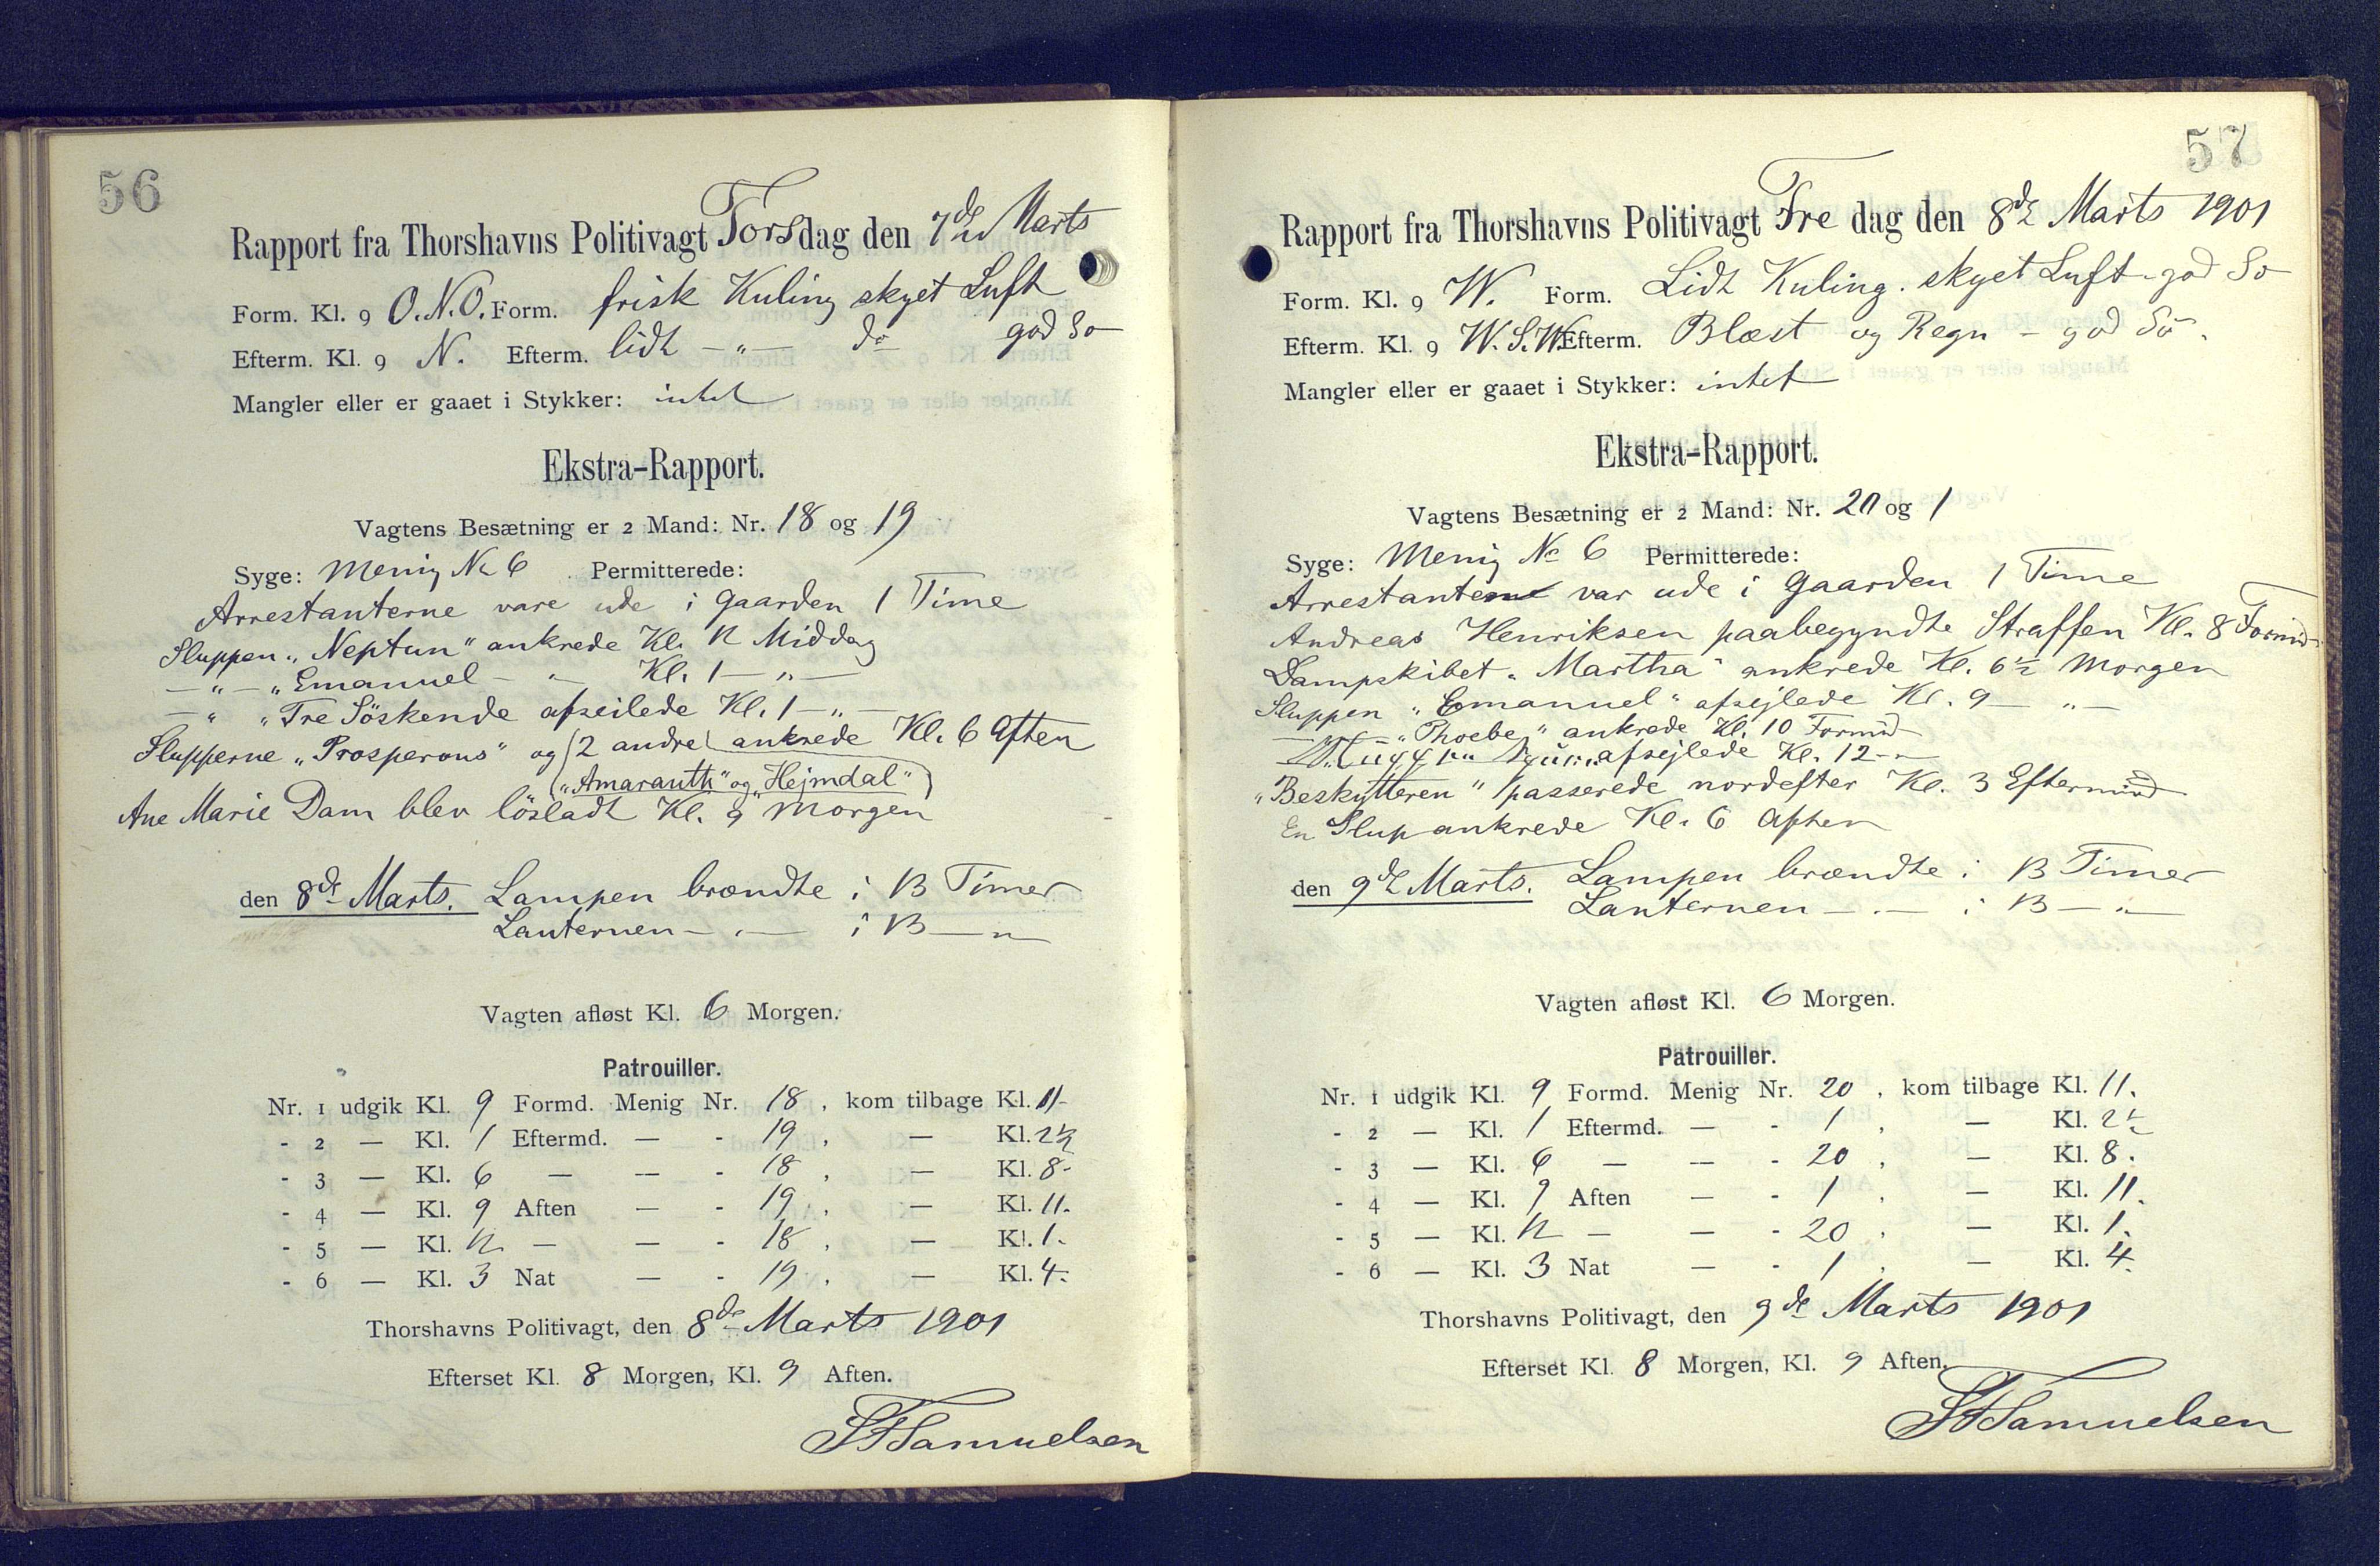 56
Rapport fra Thorshavns Politivagt Torsdag den 7de Marts
Form. Kl. 9 O.N.O. Form. frisk Kuling skyet Luft
Efterm. Kl. 9 N. Efterm. lidt —"— do god Sø
Mangler eller er gaaet i Stykker: intet
Ekstra-Rapport.
Vagtens Besætning er 2 Mand: Nr. 18 og 19
Syge: Menig No 6 Permitterede:
Arrestanterne vare ude i Gaarden 1 Time
Sluppen „Neptun" ankrede Kl. 12 Middag
—"— „Emanuel — " — Kl. 1 —"—
—" „Tre Söskende afseilede Kl. 1 —"—
Slupperne „Prosperous" og (2 andre) ankrede Kl. 6 Aften
(„Amaranth" og „Hejmdal")
Ane Marie Dam blev lösladt Kl. 9 Morgen
den 8de Marts. Lampen brændte i 13 Timer
Lanternen —"— i 13 —"—
Vagten afløst Kl. 6 Morgen.
Patrouiller.
Nr. 1 udgik Kl. 9 Formd. Menig Nr. 18, kom tilbage Kl. 11-
- 2 — Kl. 1 Eftermd. — - 19, — Kl. 2½
- 3 — Kl. 6 — — - 18, — Kl. 8-
- 4 — Kl. 9 Aften — - 19, — Kl. 11.
- 5 — Kl. 12 — — - 18, — Kl. 1.
- 6 — Kl. 3 Nat — - 19, — Kl. 4.
Thorshavns Politivagt, den 8de Marts 1901
Efterset Kl. 8 Morgen, Kl. 9 Aften.
Samuelsen
57
Rapport fra Thorshavns Politivagt Fre dag den 8de Marts 1901
Form. Kl. 9 W. Form. Lidt Kuling. skyet Luft - god Sø
Efterm. Kl. 9 W.S.W. Efterm. Blæst og Regn - god Sö.
Mangler eller er gaaet i Stykker: intet
Ekstra-Rapport.
Vagtens Besætning er 2 Mand: Nr. 20 og 1
Syge: Menig No 6 Permitterede:
Arrestanten var ude i Gaarden 1 Time
Andreas Henriksen paabegyndte Straffen Kl. 8 Formd
Dampskibet „Martha" ankrede Kl. 6½ Morgen
Sluppen „Emanuel" afsejlede Kl. 9 — "—
—"— „Phoebe" ankrede Kl. 10 Formd
afsejlede Kl. 12 —"
„Beskytteren" passerede nordefter Kl. 3 Eftermd
En Slup ankrede Kl. 6 Aften
den 9de Marts. Lampen brændte i 13 Timer
Lanternen —"— i 13 —"—
Vagten afløst Kl. 6 Morgen.
Patrouiller.
Nr. 1 udgik Kl. 9 Formd. Menig Nr. 20, kom tilbage Kl. 11.
- 2 — Kl. 1 Eftermd. — - 1, — Kl. 2½
- 3 — Kl. 6 — — - 20, — Kl. 8.
- 4 — Kl. 9 Aften — - 1, — Kl. 11.
- 5 — Kl. 12 — — - 20, — Kl. 1.
- 6 — Kl. 3 Nat — - 1, — Kl. 4.
Thorshavns Politivagt, den 9de Marts 1901
Efterset Kl. 8 Morgen, Kl. 9 Aften.
Samuelsen